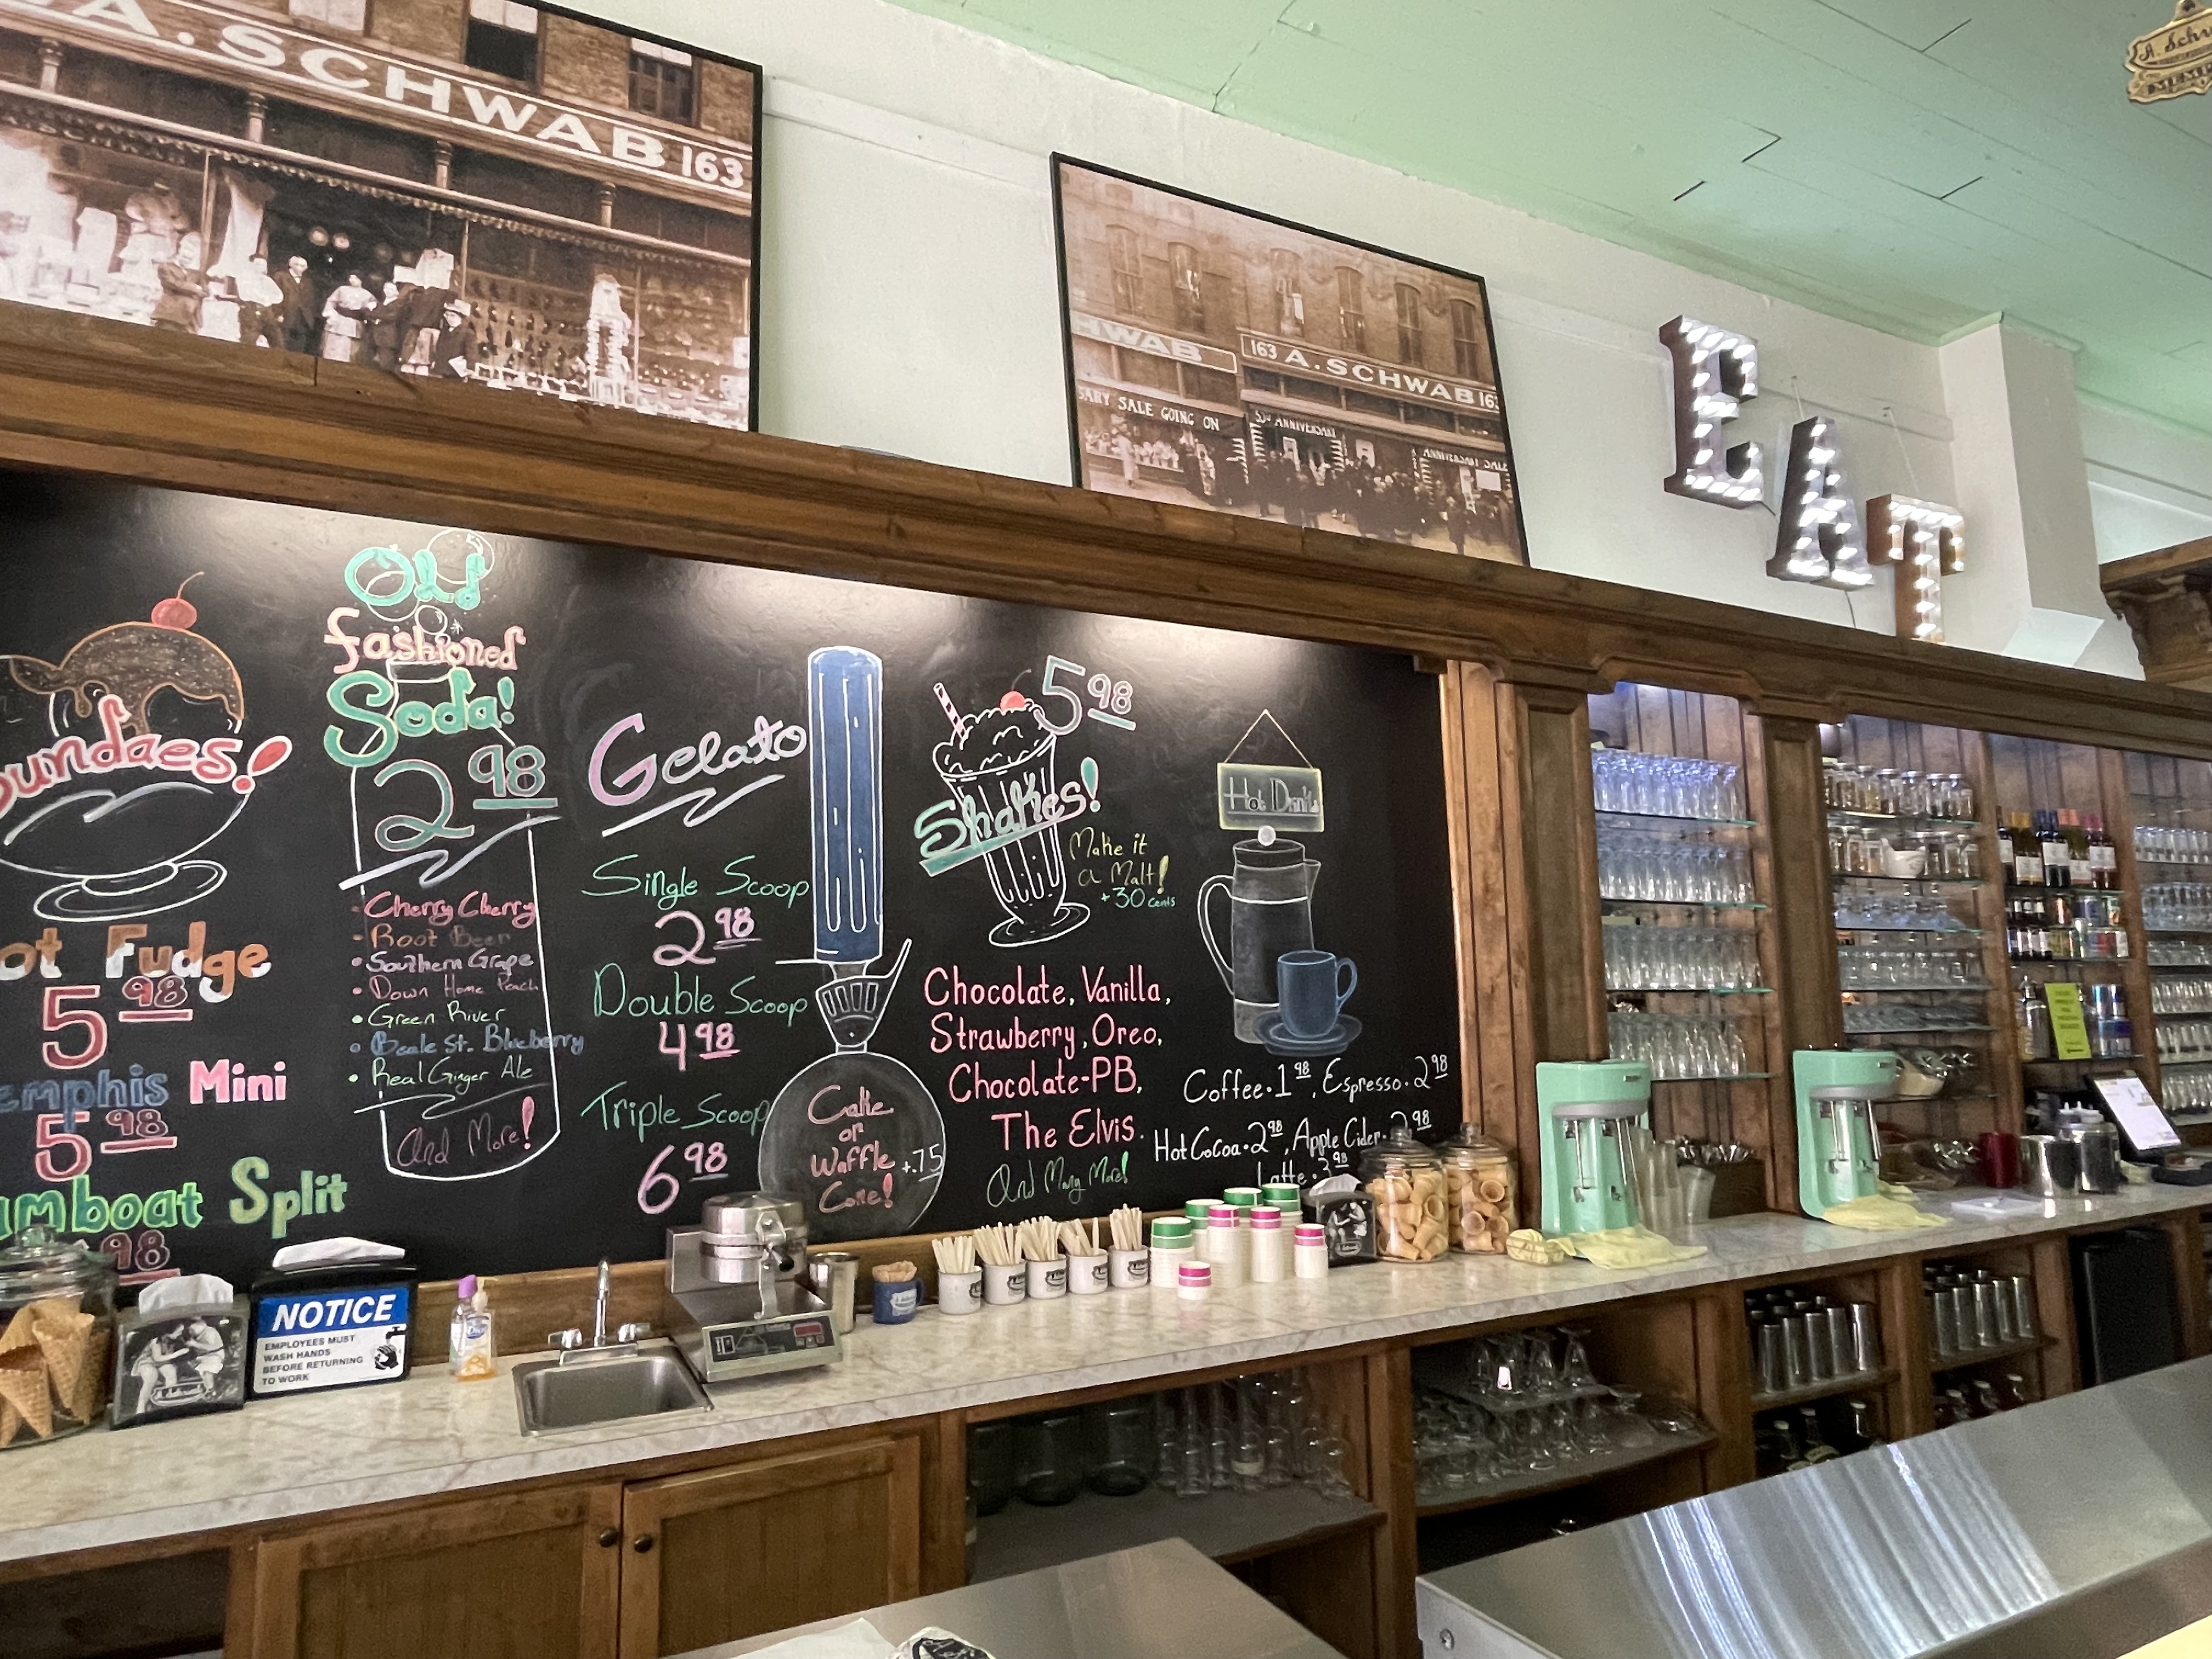 A. SCHWAB 163
HWAB
163 A. SCHWAB 163
SARY SALE GOING ON
ANNIVERSARY
ANNIVERSARY SALE
EAT
Sundaes!
ot Fudge
5 98
emphis Mini
5 98
amboat Split
98
Old
fashioned
Soda!
2 98
• Cherry Cherry
• Root Beer
• Southern Grape
• Down Home Peach
• Green River
• Beale St. Blueberry
• Real Ginger Ale
And More!
Gelato
Single Scoop
2 98
Double Scoop
4 98
Triple Scoop
6 98
Cake
or
Waffle
Cone!
+.75
5 98
Shakes!
Make it
a Malt!
+30 cents
Chocolate, Vanilla,
Strawberry, Oreo,
Chocolate-PB,
The Elvis.
And Many More!
Hot Drinks
Coffee. 1 98, Espresso. 2 98
Hot Cocoa. 2 98, Apple Cider. 2 98
Latte. 3 98
NOTICE
EMPLOYEES MUST
WASH HANDS
BEFORE RETURNING
TO WORK